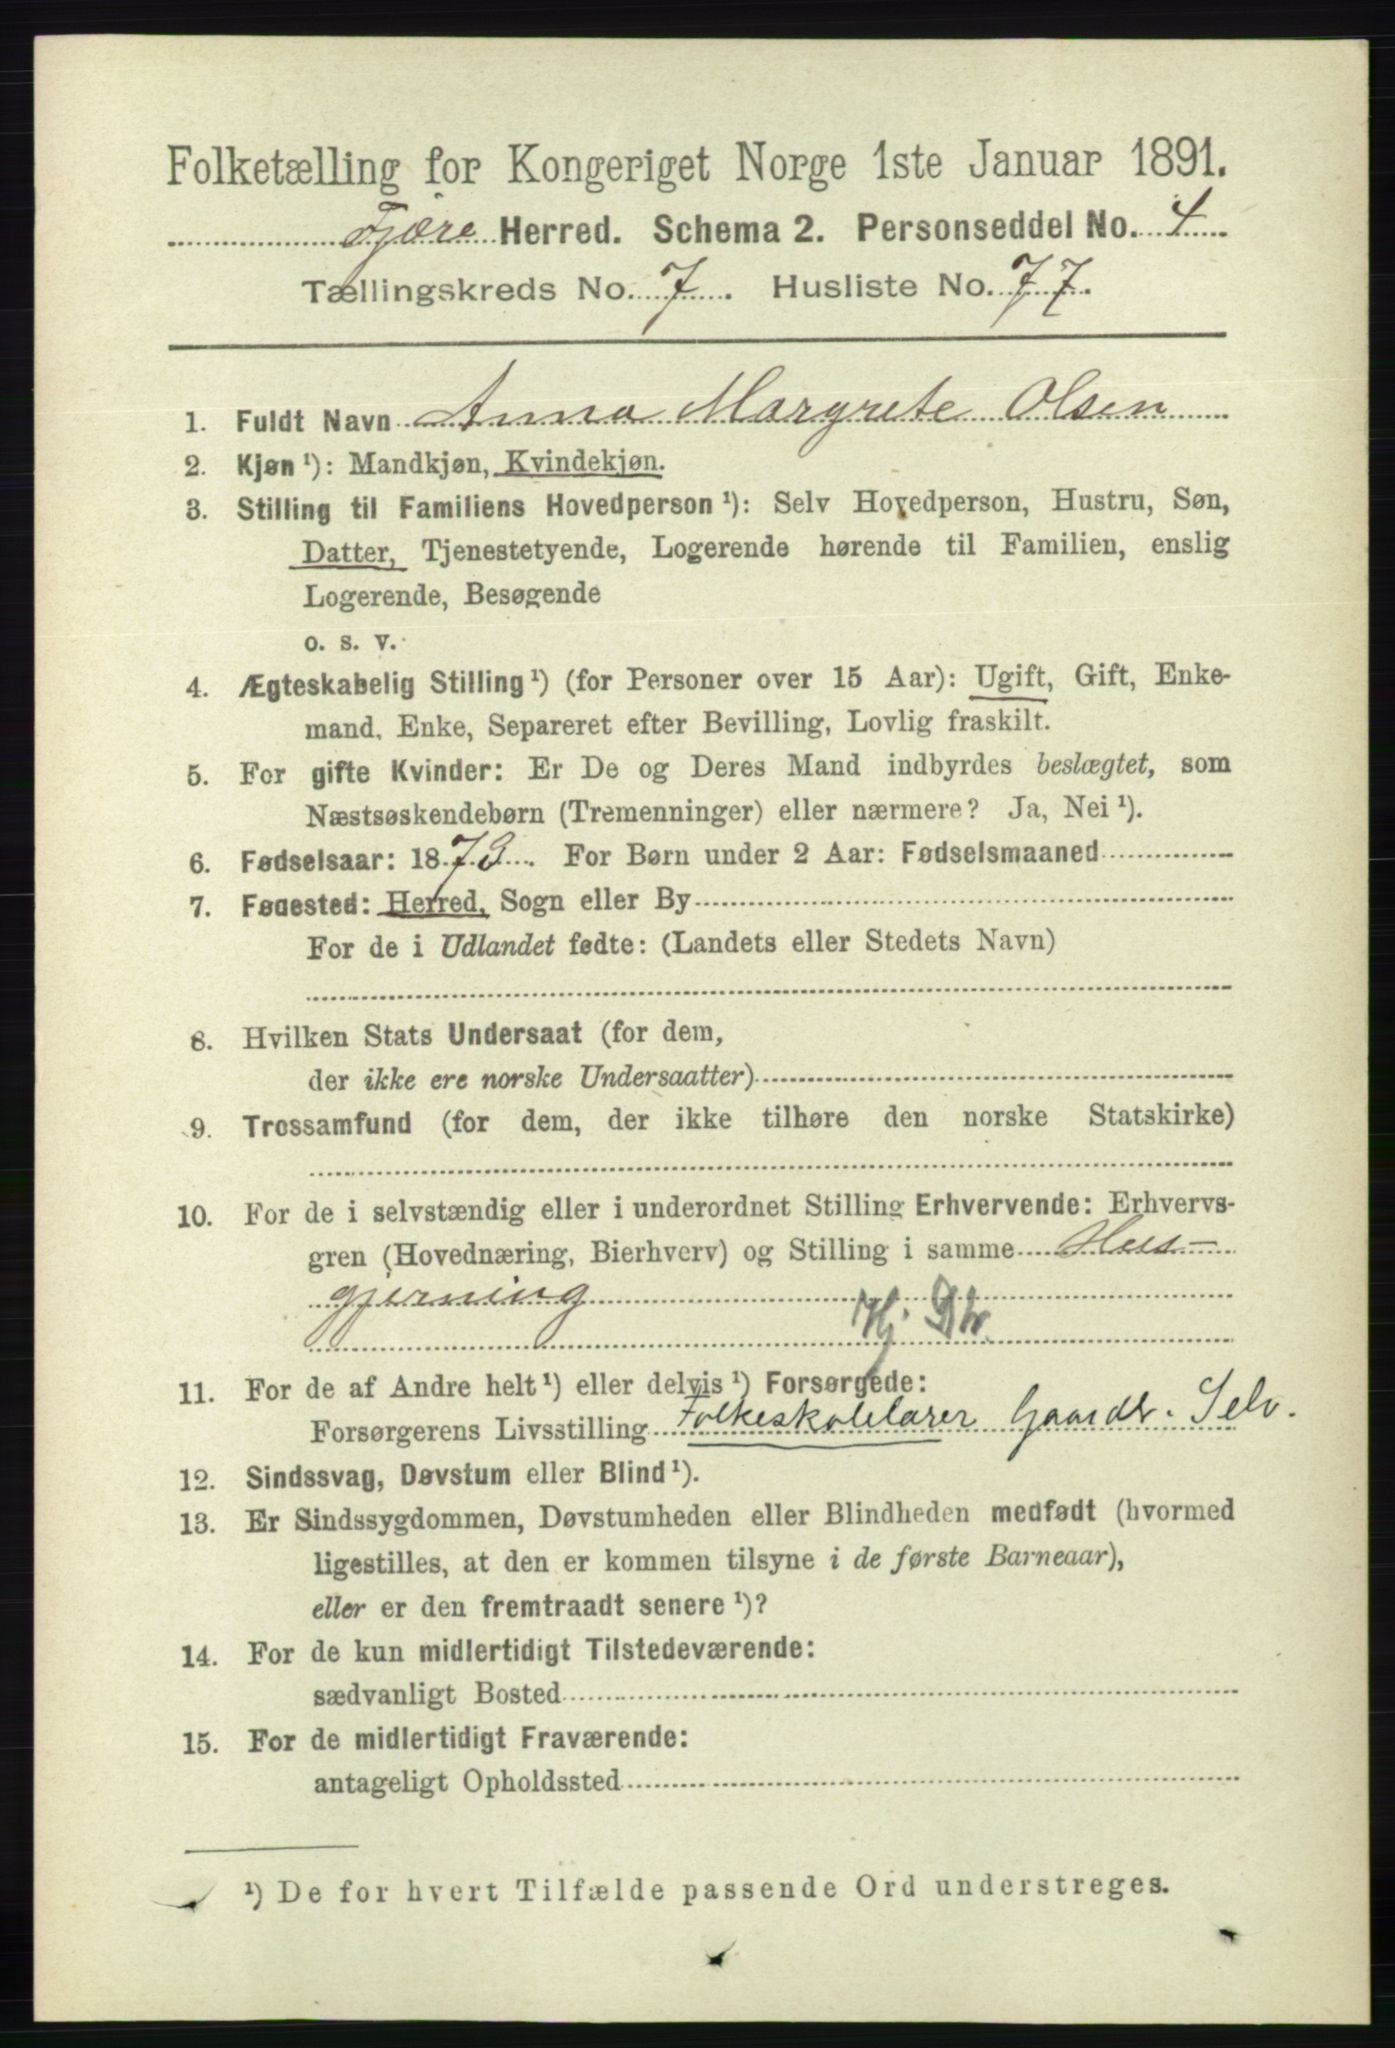 Folketælling for Kongeriget Norge 1ste Januar 1891.
Fjære Herred. Schema 2. Personseddel No. 4
Tællingskreds No. 7. Husliste No. 77.
1. Fuldt Navn Anna Margrete Olsen
2. Kjøn ¹): Mandkjøn, Kvindekjøn.
3. Stilling til Familiens Hovedperson ¹): Selv Hovedperson, Hustru, Søn,
Datter, Tjenestetyende, Logerende hørende til Familien, enslig
Logerende, Besøgende
o. s. v.
4. Ægteskabelig Stilling ¹) (for Personer over 15 Aar): Ugift, Gift, Enke-
mand, Enke, Separeret efter Bevilling, Lovlig fraskilt.
5. For gifte Kvinder: Er De og Deres Mand indbyrdes beslægtet, som
Næstsøskendebørn (Tremenninger) eller nærmere? Ja, Nei ¹).
6. Fødselsaar: 1873. For Børn under 2 Aar: Fødselsmaaned
7. Fødested: Herred, Sogn eller By
For de i Udlandet fødte: (Landets eller Stedets Navn)
8. Hvilken Stats Undersaat (for dem,
der ikke ere norske Undersaatter)
9. Trossamfund (for dem, der ikke tilhøre den norske Statskirke)
10. For de i selvstændig eller i underordnet Stilling Erhvervende: Erhvervs-
gren (Hovednæring, Bierhverv) og Stilling i samme Hus-
gjerning
Hj. Dtr.
11. For de af Andre helt ¹) eller delvis ¹) Forsørgede:
Forsørgerens Livsstilling Folkeskolelærer Gaardbr. Selv.
12. Sindssvag, Døvstum eller Blind ¹).
13. Er Sindssygdommen, Døvstumheden eller Blindheden medfødt (hvormed
ligestilles, at den er kommen tilsyne i de første Barneaar),
eller er den fremtraadt senere ¹)?
14. For de kun midlertidigt Tilstedeværende:
sædvanligt Bosted
15. For de midlertidigt Fraværende:
antageligt Opholdssted
¹) De for hvert Tilfælde passende Ord understreges.